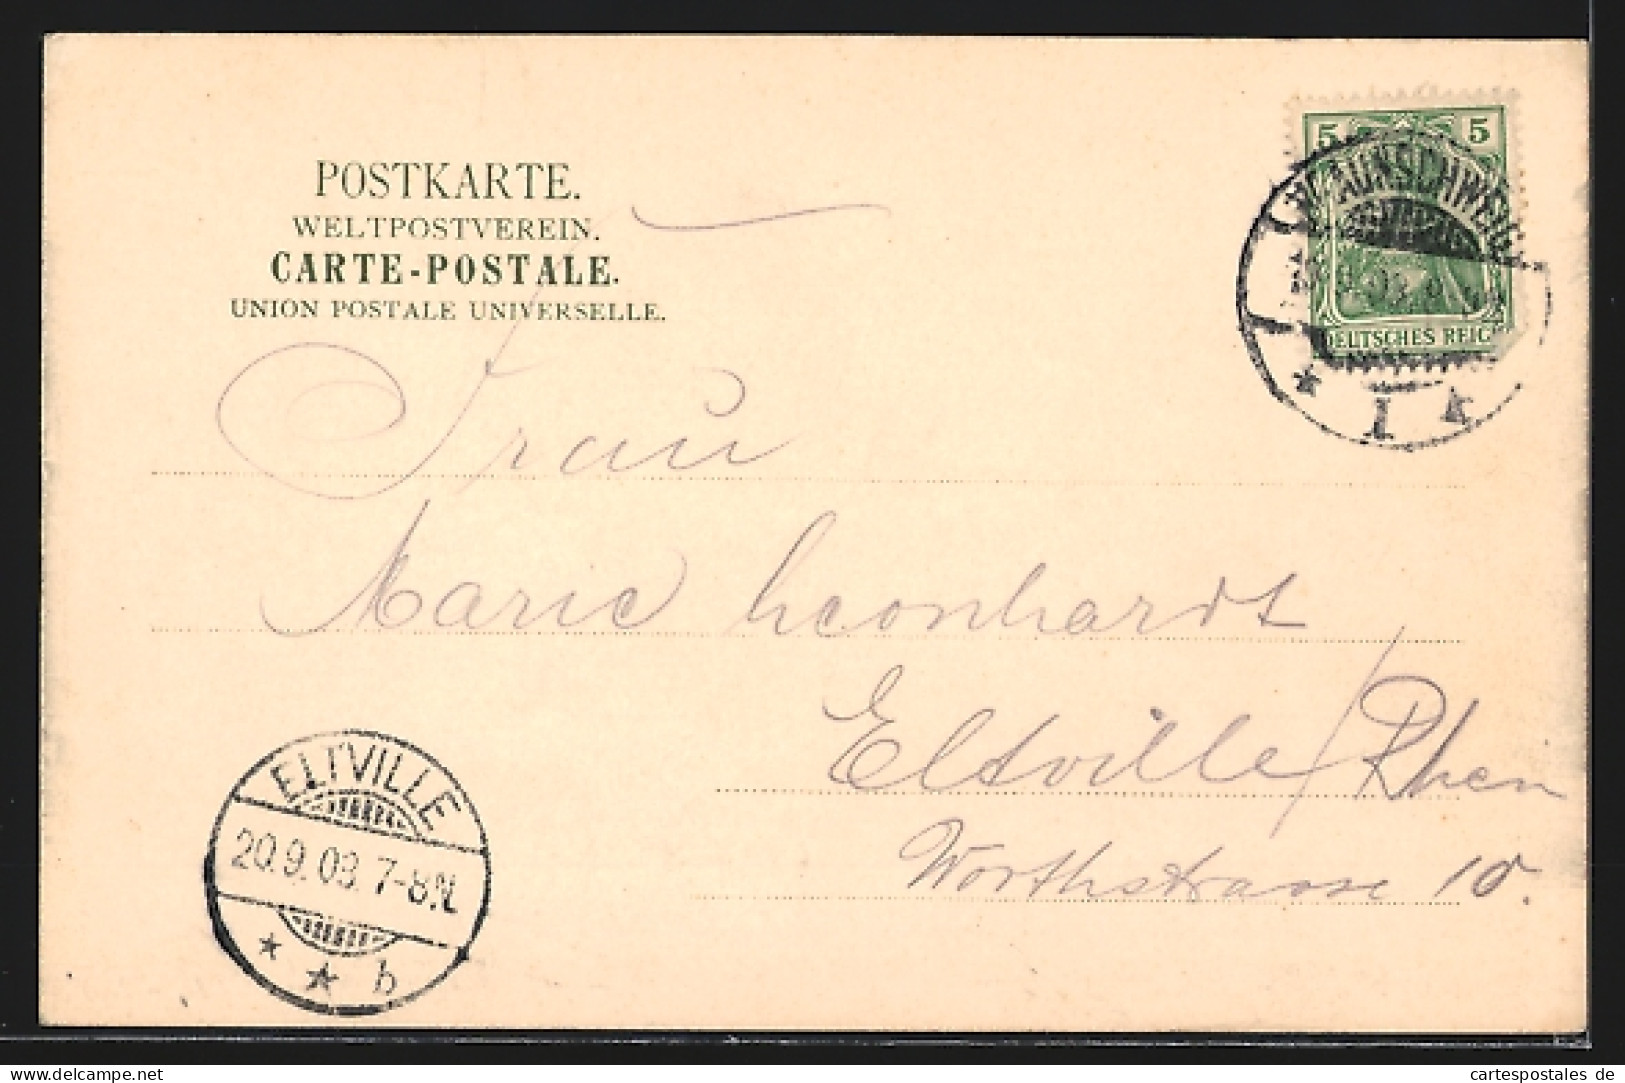 POSTKARTE.
WELTPOSTVEREIN.
CARTE-POSTALE.
UNION POSTALE UNIVERSELLE.
5 5
BRAUNSCHWEIG
DEUTSCHES REIC
* 1 *
Frau
Marie Leonhardt
Eltville / Rhein
Wörthstrasse 10.
ELTVILLE
20.9.03. 7-8.N.
* * b
cartespostales de